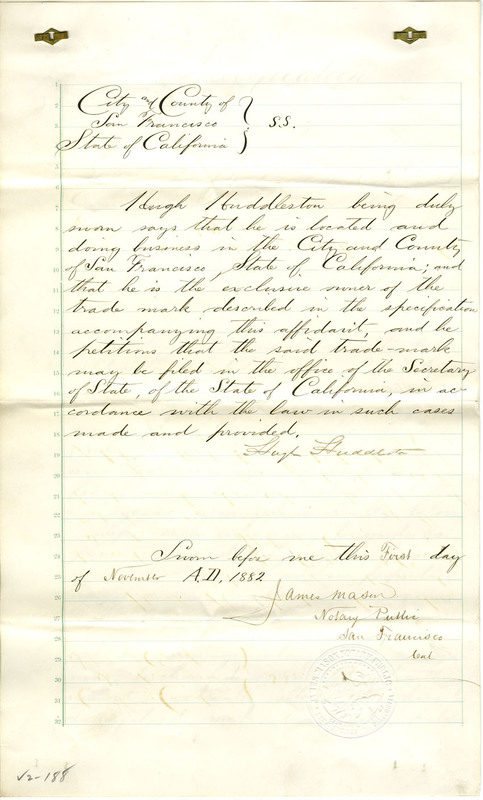 City and County of
San Francisco } S.S.
State of California
Hugh Huddleston being duly
sworn says that he is located and
doing business in the City and County
of San Francisco, State of California; and
that he is the exclusive owner of the
trade mark described in the specification
accompanying this affidavit, and he
petitions that the said trade-mark
may be filed in the office of the Secretary
of State, of the State of California, in ac-
cordance with the law in such cases
made and provided.
Hugh Huddleston
Sworn before me this First day
of November A.D. 1882
James Mason
Notary Public
San Francisco
Cal